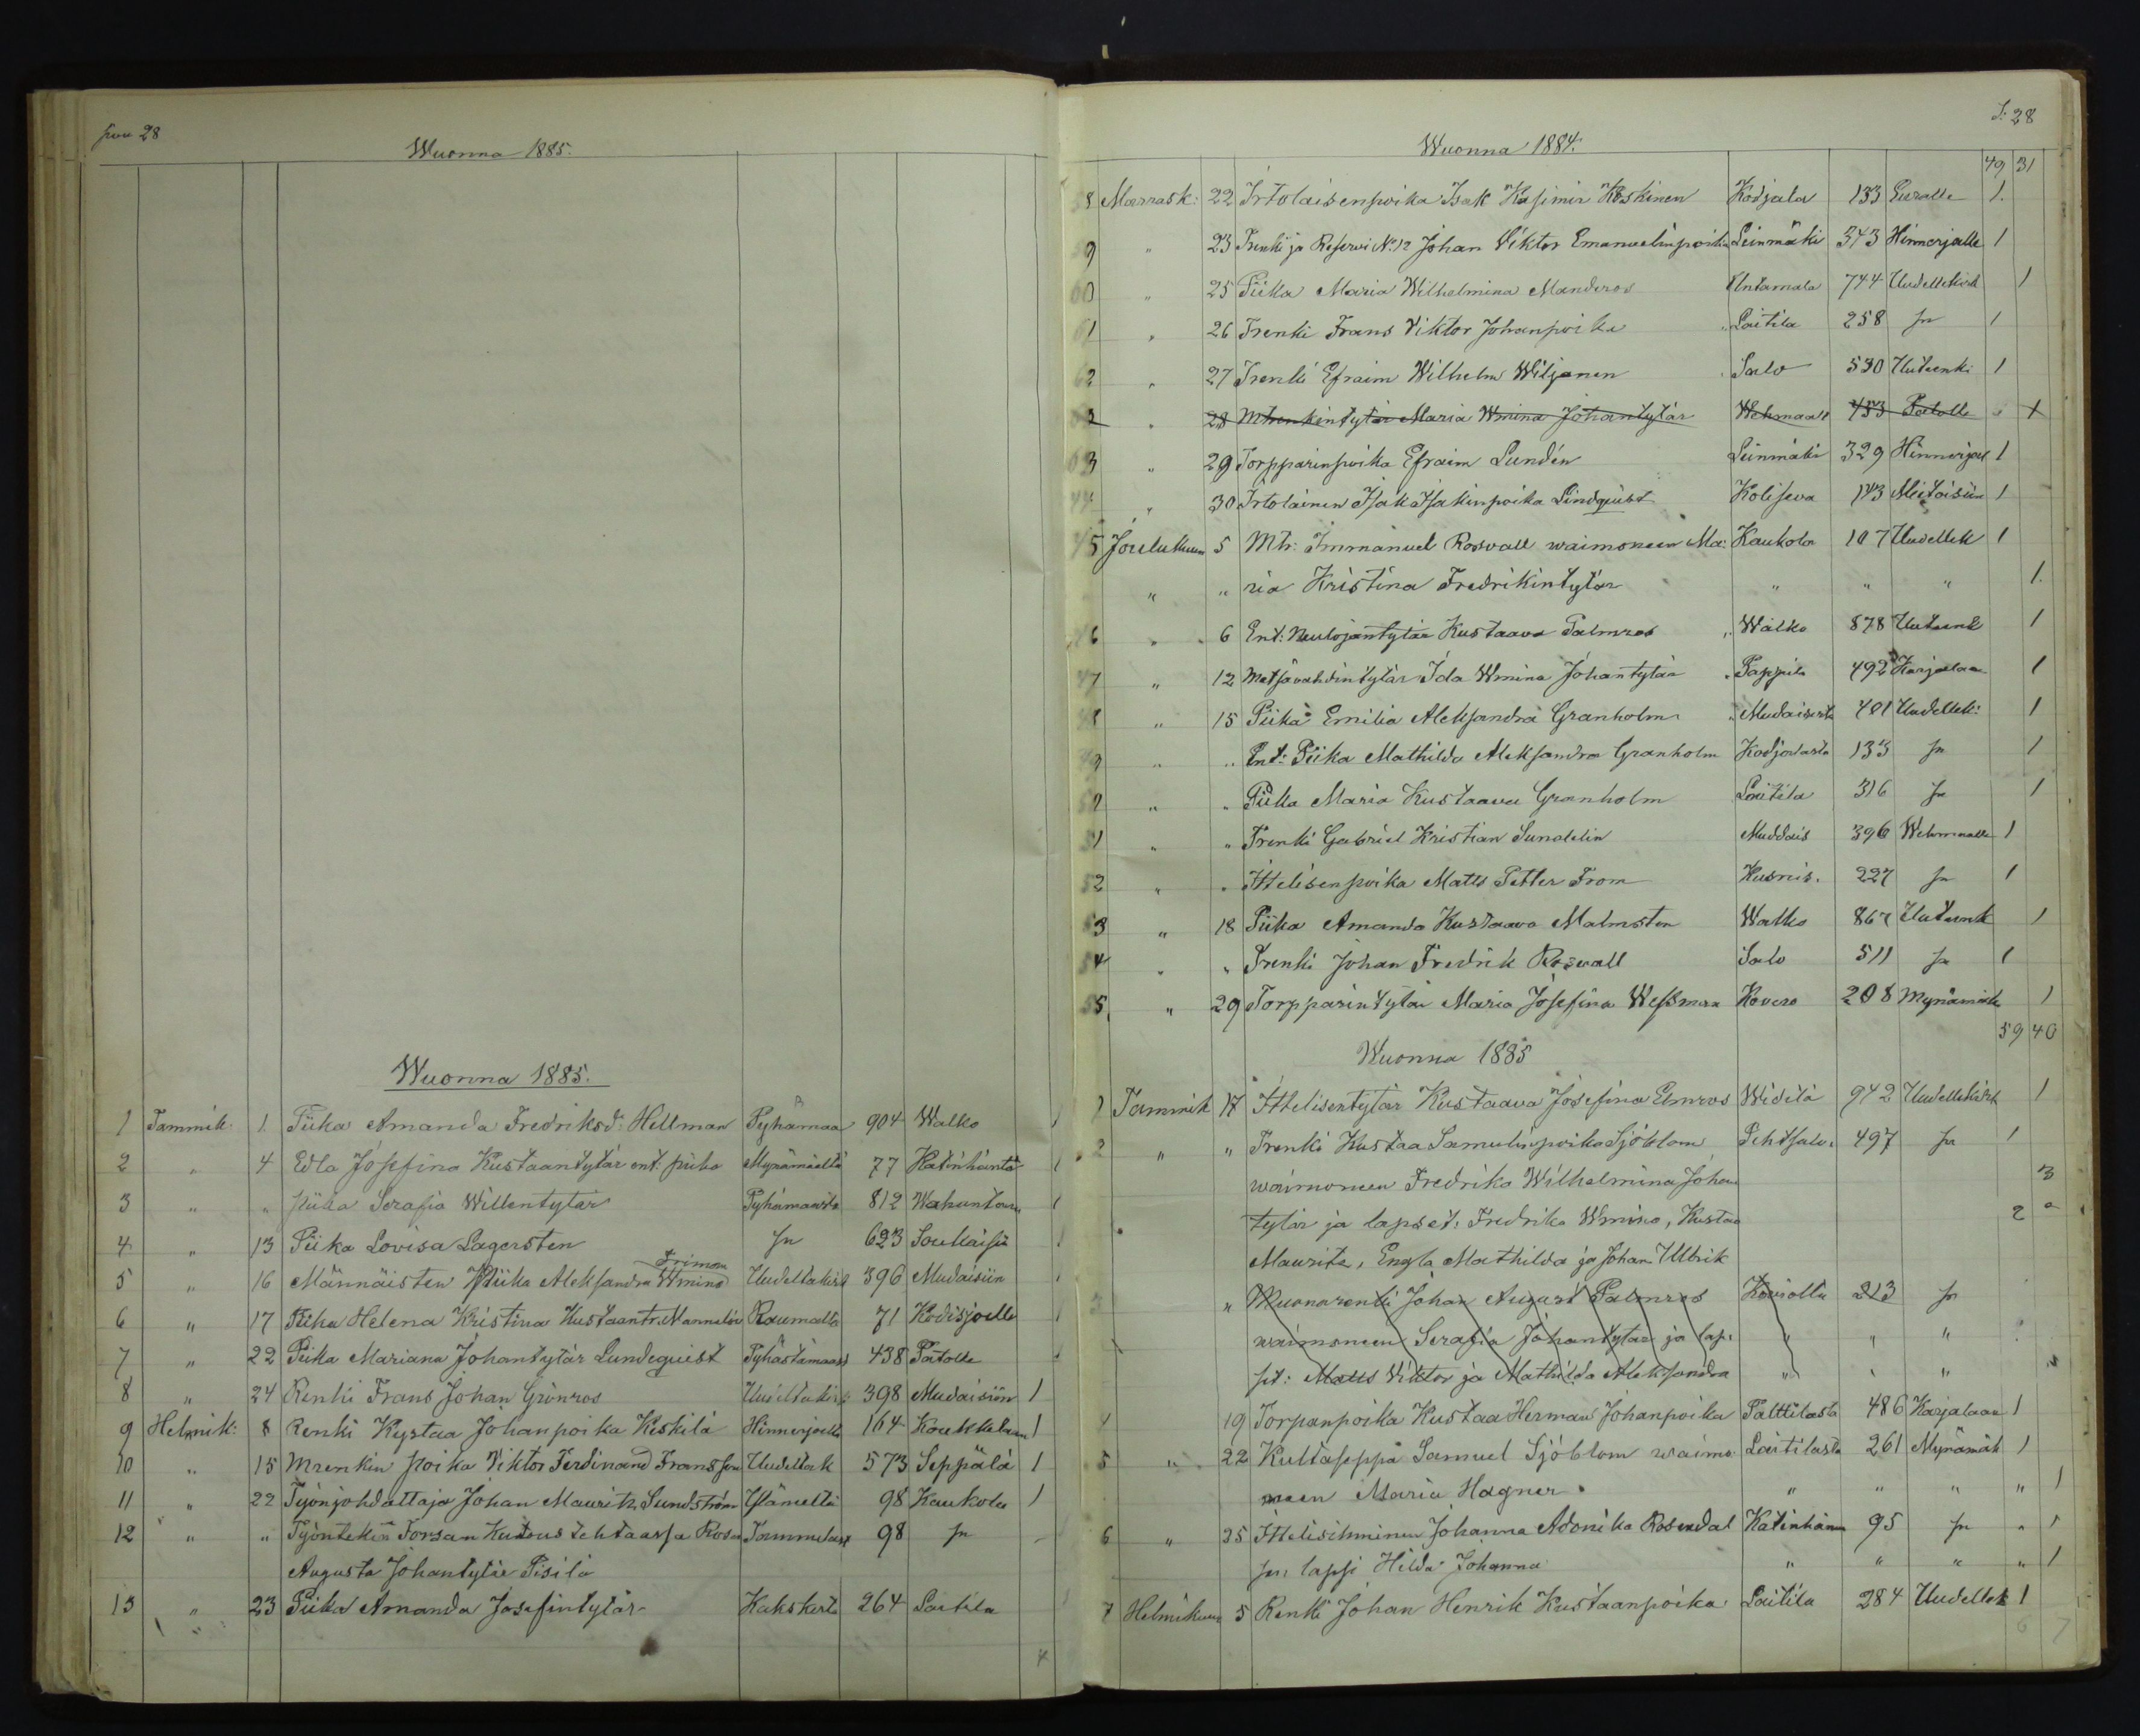 28
Wuonna 1885.
Wuonna 1885.
1 Tammik. 1. Piika Amanda Fredriksd: Hellman Pyhämaa 904 Walko 1
2 " 4 Edla Josefina Kustaantytär ent. piika Mynämäeltä 77 Katinhänta 1
3 " " piika Serafia Willentytär Pyhämaasta 812 Wahantaan 1
4 " 13 Piika Lovisa Lagersten Sn 623 Soukaisiin 1
Friman
5 " 16 Männäisten Piika Aleksandra Wmina Uudeltakirk 396 Mudaisiin 1
6 " 17 Piika Helena Kristina Kustaantr. Mannelin Raumalta 71 Kodisjoelle 1
7 " 22 Piika Mariana Johantytär Lundequist 438 Padolle 1
8 " 24 Renki Frans Johan Grönroos Uudeltakirk 398 Mudaisiin 1
9 Helmik: 8 Renki Kystaa Johanpoika Keskilä Hinnerjoelta 164 Koukkelaan 1
10 " 15 Mrenkin poika Viktor Ferdinand Fransson Uudeltak 573 Seppälä 1
11 " 22 Työnjohdattaja Johan Maurits Sundström Yläneltä 98 Kaukola 1
12 " " Työntekiä Forssan Kutous tehtaassa Rosa Tammelast 98 Sn
Augusta Johantytär Pisilä
13 " 23 Piika Amanda Josefintytär Kakskerta 264 Laitila
S: 28
Wuonna 1884.
49 31
8 Marrask: 22 Irtolaisenpoika Isak Kasimir Koskinen Kodjala 133 Euralle 1.
9 " 23 Trenki ja Reservi No 12 Johan Viktor Emanuelinpoika Leinmäki 343 Hinnerjoelle 1
60 " 25 Piika Maria Wilhelmina Manderos Untamala 744 Uudellekirk 1
61 " 26 Trenki Frans Viktor Johanpoika Laitila 258 Sn 1
62 " 27 Trenki Efraim Wilhelm Wiljanen Salo 530 Uuteenki 1
" 28 Mtrenkintytär Maria Wmina Johantytär Wehmaalt 453 Padolle 1
63 " 29 Torpparinpoika Efraim Lundén Leinmäki 329 Hinnerjoel 1
44 " 30 Irtolainen Isak Isakinpoika Lindquist Koliseva 143 1
45 Joulukuun 5 Mtr: Immanuel Rosvall waimoneen Ma: Kaukola 107 Uudellek 1
" " ria Kristina Fredrikintytär " " " 1.
46 " 6 Ent: Neulojantytär Kustaava Palmroos Walko 878 Uuteenk 1
47 " 12 Metsävahdintytär Ida Wmina Johantytär Pappila 492 Karjalaan 1
48 " 15 Piika Emilia Aleksandra Granholm Mudaisista 401 Uudellek: 1
49 " " Ent: Piika Mathilda Aleksandra Granholm Kodjalasta 133 Sn 1
50 " " Piika Maria Kustaava Granholm Laitila 316 Sn 1
51 " " Trenki Gabriel Kristian Sundelin Muddais 396 Wehmaalle 1
52 " " Ittelisenpoika Matts Petter From Kusnis. 227 Sn 1
53 " 18 Piika Amanda Kustaava Malmsten Walko 867 Uuteenk 1
54 " " Trenki Johan Fredrik Roswall Salo 511 Sn 1
55 " 29 Torpparintytär Maria Josefina Wessman Kovero 208 Mynämäk 1
59 40
Wuonna 1885
1 Tammik 17 Ittelisentytär Kustaava Josefina Elmroos Widilä 942 Uudellekirk 1
2 " " Trenki Kustaa Samulinpoika Sjöblom Pehtsalo 497 Sn 1
waimoneen Fredrika Wilhelmina Johan 3
tytär ja lapset: Fredrika Wmina, Kustaa 2
Maurits, Engla Mathilda ja Johan Ulrik
3 " Muonarenki Johan August Palmroos 213 Sn
waimoneen Serafia Johantytär ja lap: " " "
set: Matts Viktor ja Mathilda Aleksandra " "
4 19 Torpanpoika Kustaa Herman Johanpoika Palttilasta 486 Karjalaan 1
5 " 22 Kultaseppä Samuel Sjöblom waimo Laitilasta 261 Mynämäk 1
neen Maria Hagner " " " " 1
6 " 25 Ittelisihminen Johanna Adonika Rosendal Katinhänn 95 Sn " 1
Sn, lapsi Hilda Johanna " " " " 1
7 Helmikuun 5 Renki Johan Henrik Kustaanpoika Laitila 284 Uudellek 1
6 7